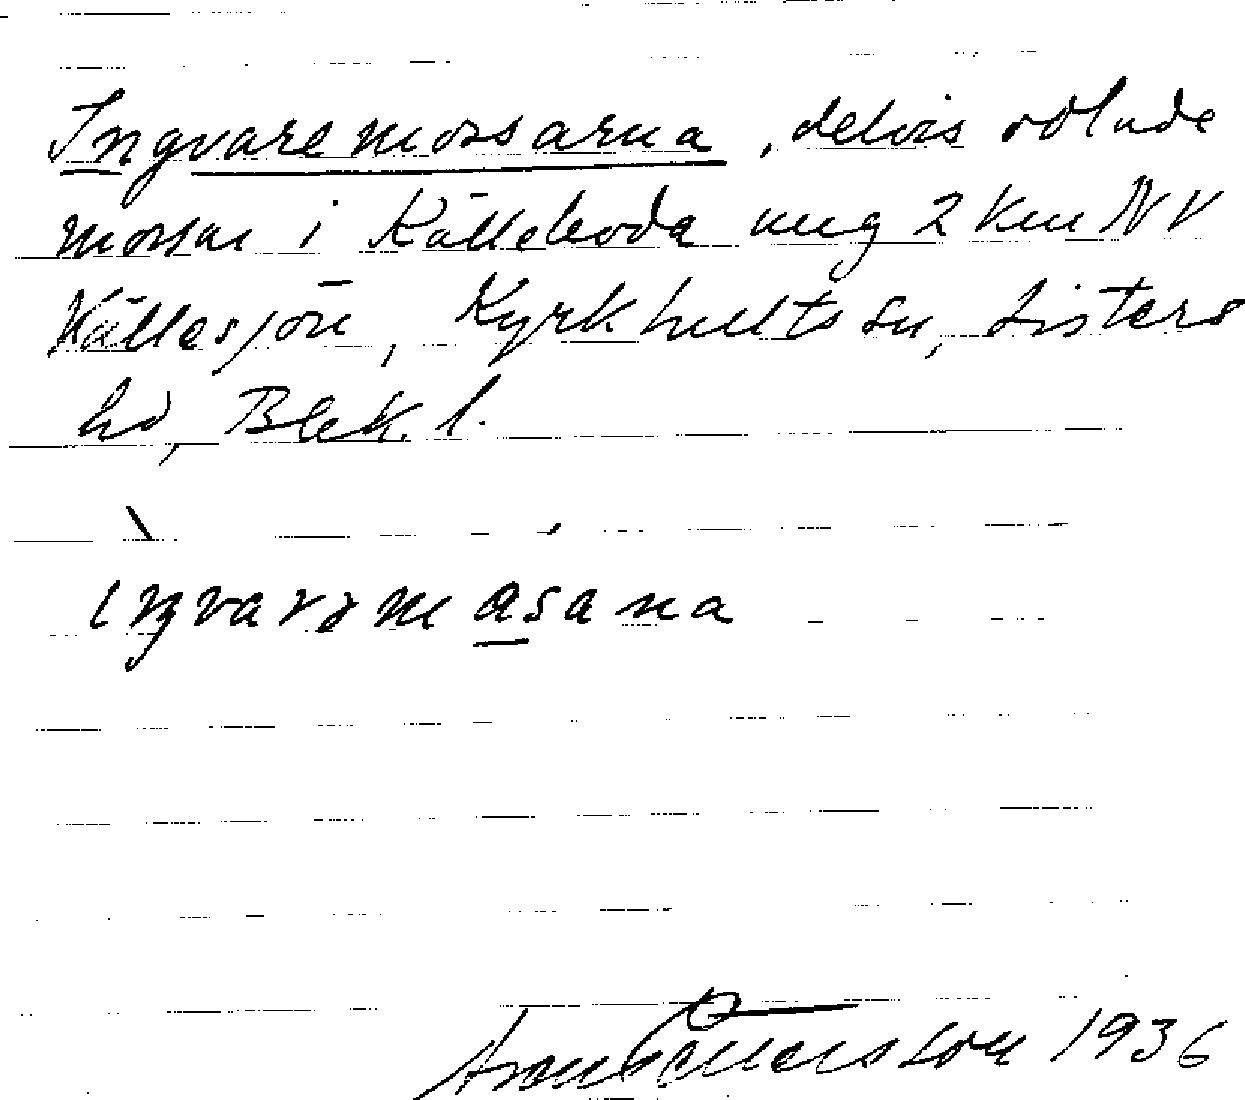 Ingvaremossarna, delvis odlade
mossar i Källeboda ung 2 km NV
Källesjön, Kyrkhults sn, Listers
hd, Blek. l.
ıŋvarəmåsana
1936